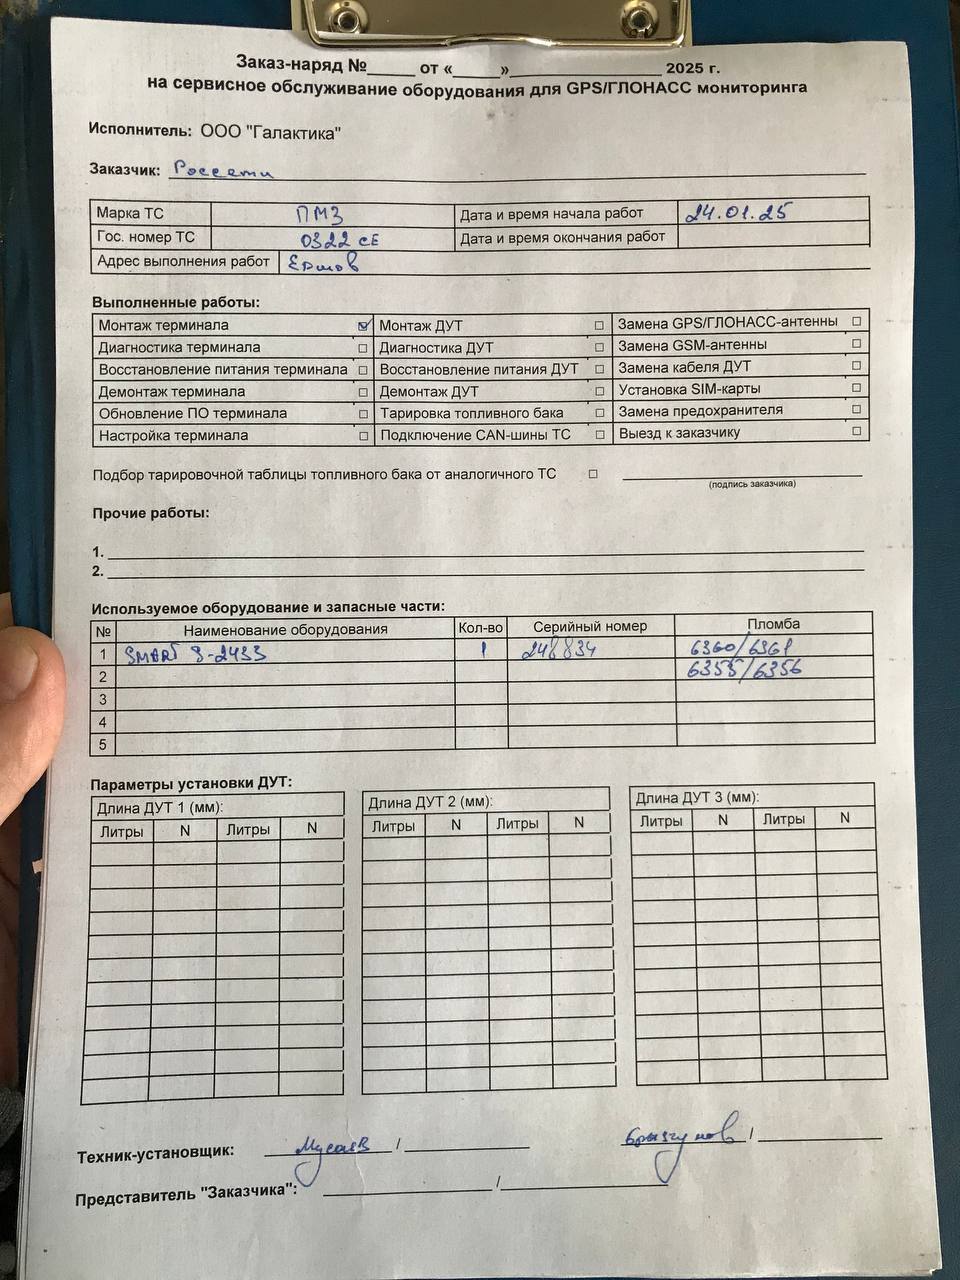 Заказ-наряд №_____ от «_____»________________ 2025 г.
на сервисное обслуживание оборудования для GPS/ГЛОНАСС мониторинга
Исполнитель: ООО "Галактика"
Заказчик: Россети
Марка ТС ПМЗ Дата и время начала работ 24.01.25
Гос. номер ТС 0322 СЕ Дата и время окончания работ
Адрес выполнения работ Ершов
Выполненные работы:
Монтаж терминала ☑ Монтаж ДУТ □ Замена GPS/ГЛОНАСС-антенны □
Диагностика терминала □ Диагностика ДУТ □ Замена GSM-антенны □
Восстановление питания терминала □ Восстановление питания ДУТ □ Замена кабеля ДУТ □
Демонтаж терминала □ Демонтаж ДУТ □ Установка SIM-карты □
Обновление ПО терминала □ Тарировка топливного бака □ Замена предохранителя □
Настройка терминала □ Подключение CAN-шины ТС □ Выезд к заказчику □
Подбор тарировочной таблицы топливного бака от аналогичного ТС □
(подпись заказчика)
Прочие работы:
1.
2.
Используемое оборудование и запасные части:
№ Наименование оборудования Кол-во Серийный номер Пломба
1 SMART S-2433 1 248834 6360/6361
2 6355/6356
3
4
5
Параметры установки ДУТ:
Длина ДУТ 1 (мм): Длина ДУТ 2 (мм): Длина ДУТ 3 (мм):
Литры N Литры N Литры N Литры N Литры N Литры N
Техник-установщик: Мусаев / Брызгунов /
Представитель "Заказчика": /